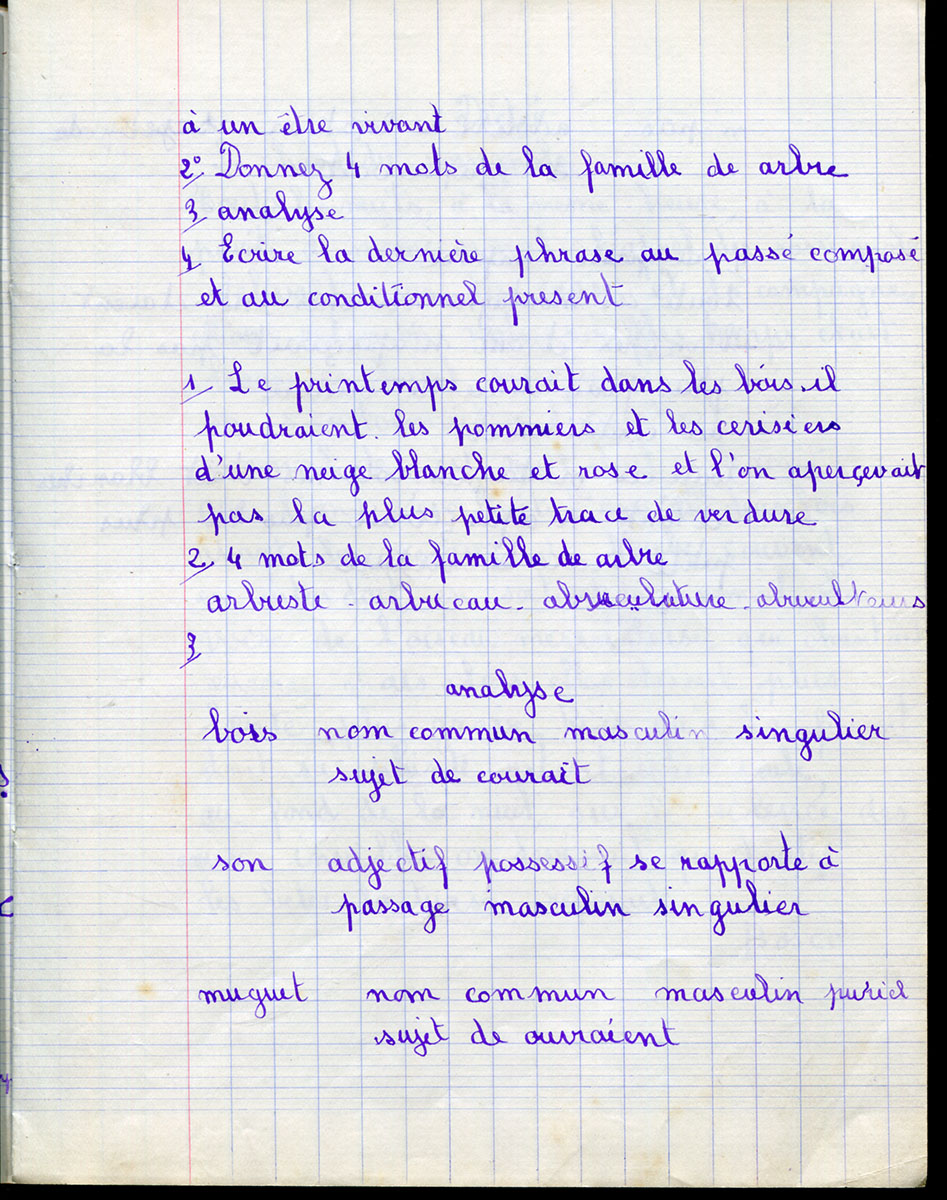 à un être vivant
2° Donnez 4 mots de la famille de arbre
3 analyse
4 Ecrire la dernière phrase au passé composé
et au conditionnel present
1 Le printemps courait dans les bois. il
poudraient. les pommiers et les cerisiers
d'une neige blanche et rose et l'on aperçevait
pas la plus petite trace de verdure
2 4 mots de la famille de arbre
arbuste - arbreau -
3
analyse
bois nom commun masculin singulier
sujet de courait
son adjectif possessif se rapporte à
passage masculin singulier
muguet nom commun masculin
sujet de ouvraient